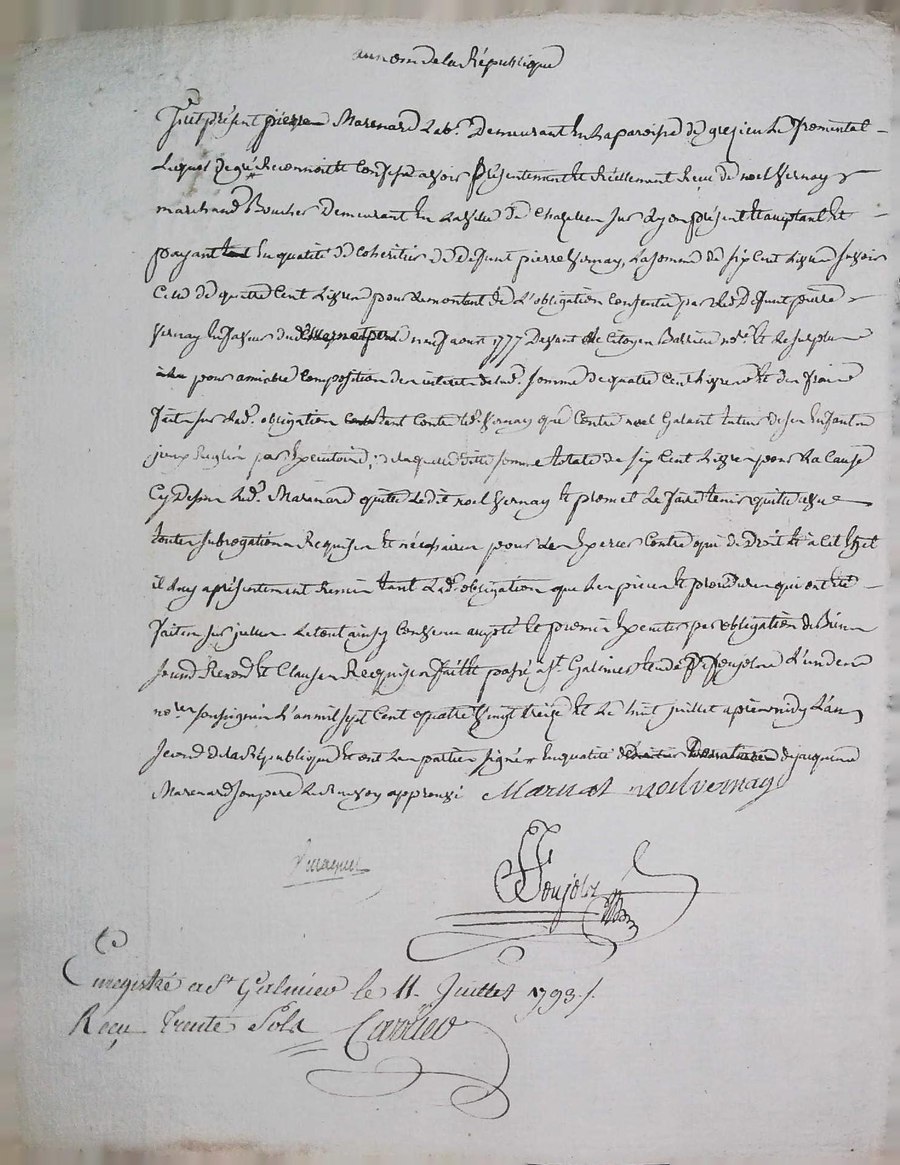 au nom de la République
fut présent pierre Marenard Lab.r Demeurant En La paroisse de grezieu Le fromental
Lequel de gré Reconnoitt Confesse avoir présentement et Réellement Reçu de noel Vernay
marchand Boucher Demeurant En La Ville de Chazelles sur Lyon présent Et acceptant Et
payant En qualité de coheritier de deffunt pierre Vernay, La somme de six Cent Livres savoir
Celle de quatre Cent Livres pour Le montant de L'obligation Consentie par Led. Deffunt pierre
Vernay En faveur du neuf aout 1777 Devant Le Citoyen no.re Et Le surplus
pour amiable Composition des interets de lad. somme de quatre Cent Livres Et des fraix
faits sur Lad. obligation tant Contre Led. Vernay que Contre noel Galand tuteur de ses Enfants
par Executoire, de laquelle ditte somme totale de six Cent Livres pour La Cause
Cy Dessus Led. Marenard quitte Ledit noel Vernay Et promet Le faire tenir quitte avec
toutes subrogations Requises Et nécessaires pour Les Exercer Contre qui de Droit Et à Cet Effet
il luy a présentement Remis tant Lad. obligation que Les pieces Et procedures qui ont été
faites sur julles Le tout ainsy Convenu accepté Et promis Executer par obligation de Biens
soumis Renon. Et Clauses Requises fait Et passé a St. Galmier Etude de Soujols L'un des
no.res soussignés L'an mil sept Cent quatre Vingt treize Et Le huit juillet après midy L'an
second de la République Et ont Les parties signé En qualité de jacques
Marenard son pere Le Renvoy approuvé Marnat noel vernay
Soujols
Enregistré a St Galmier le 11. Juillet 1793./.
Reçu trente Sols